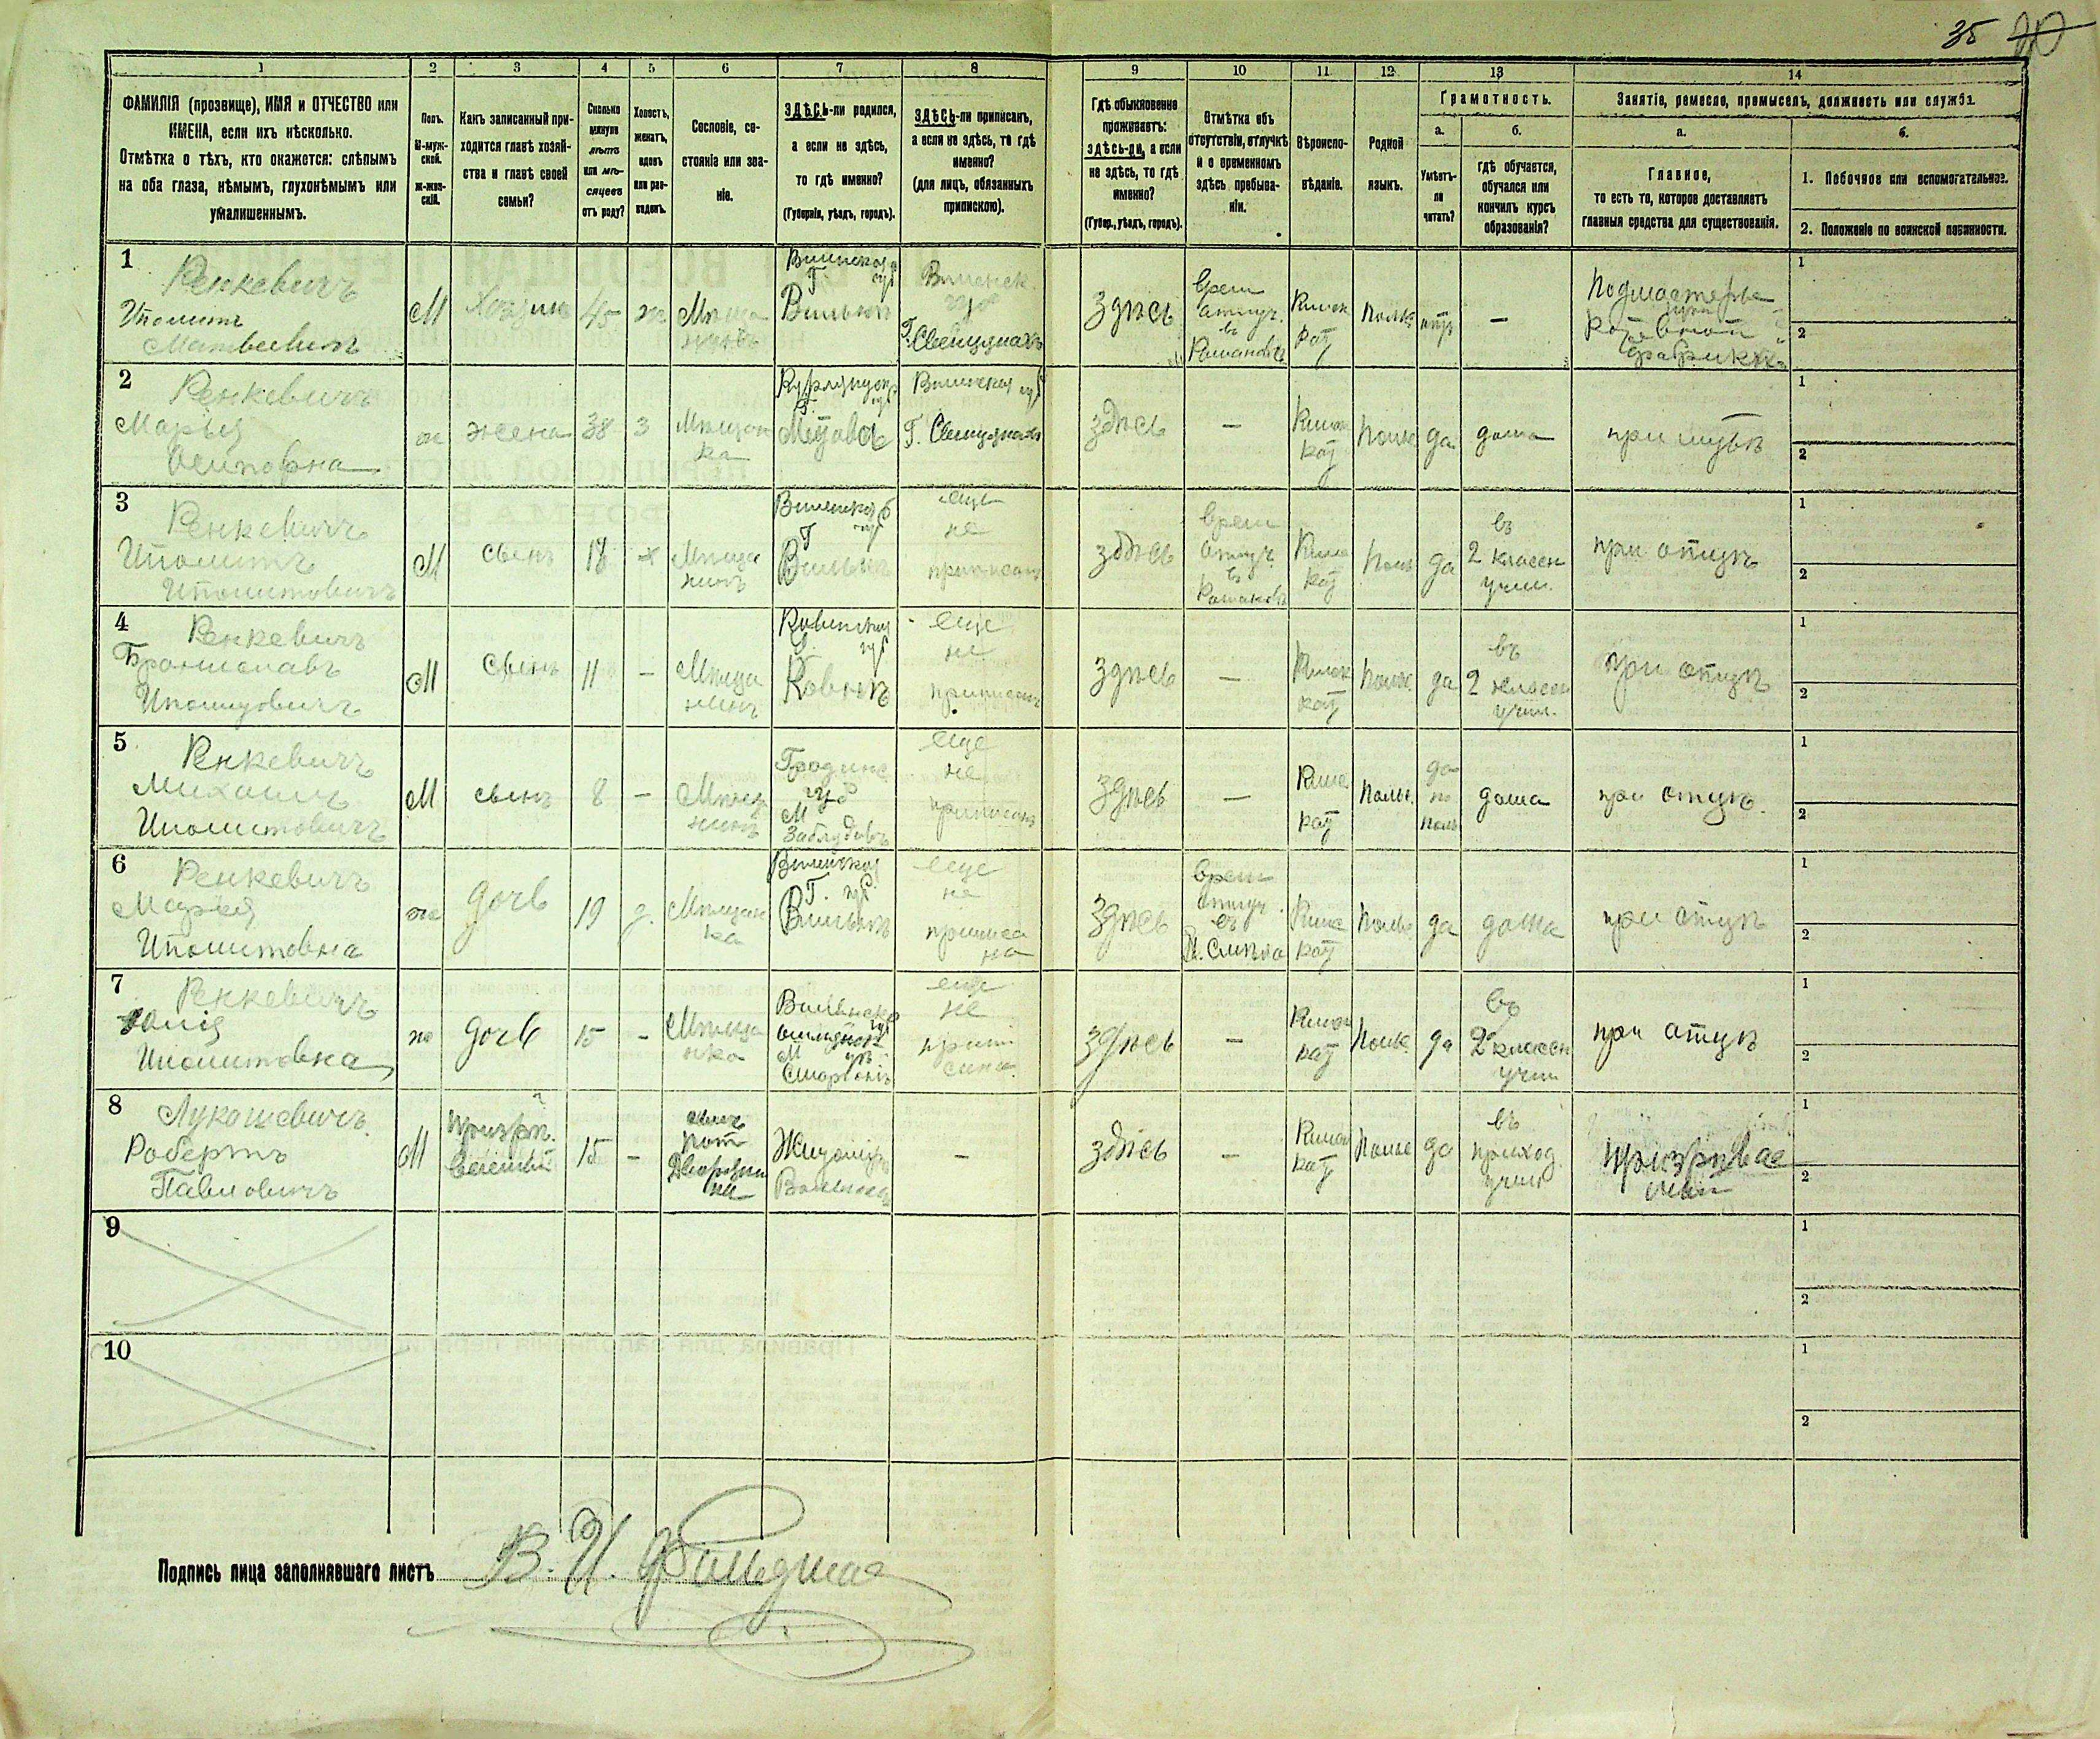 35 40
1 2 3 4 5 6 7 8 9 10 11 12 13 14
ФАМИЛІЯ (прозвище), ИМЯ и ОТЧЕСТВО или
ИМЕНА, если ихъ нѣсколько.
Отмѣтка о тѣхъ, кто окажется: слѣпымъ
на оба глаза, нѣмымъ, глухонѣмымъ или
умалишеннымъ.
Полъ.
М-муж-
ской.
ж-жен-
скій.
Какъ записанный при-
ходится главѣ хозяй-
ства и главѣ своей
семьи?
Сколько
минуло
лѣтъ
или мѣ-
сяцевъ
отъ роду?
Холостъ,
женатъ,
вдовъ
или раз-
веденъ.
Сословіе, со-
стояніе или зва-
ніе.
ЗДѢСЬ-ли родился,
а если не здѣсь,
то гдѣ именно?
(Губернія, уѣздъ, городъ).
ЗДѢСЬ-ли приписанъ,
а если не здѣсь, то гдѣ
именно?
(для лицъ, обязанныхъ
припискою).
Гдѣ обыкновенно
проживаетъ:
здѣсь-ли, а если
не здѣсь, то гдѣ
именно?
(Губер., уѣздъ, городъ).
Отмѣтка объ
отсутствіи, отлучкѣ
и о временномъ
здѣсь пребыва-
ніи.
Вѣроиспо-
вѣданіе.
Родной
языкъ.
Грамотность.
а.
Умѣетъ-
ли
читать?
б.
гдѣ обучается,
обучался или
кончилъ курсъ
образованія?
Занятіе, ремесло, промыселъ, должность или служба.
а.
Главное,
то есть то, которое доставляетъ
главныя средства для существованія.
б.
1. Побочное или вспомогательное.
2. Положеніе по воинской повинности.
1
Ренкевичъ
Иполитъ
Матвеевичъ
М
Хозяинъ
45
ж
Мѣща
нинъ
Виленская губ
Г
Вильнѣ
Виленск
губ
Г. Свенцянахъ
здѣсь
врем
отлуч.
въ
Римск
кат
Польс
нѣтъ
—
Подмастерье
при
фабрикѣ
1
2
2
Ренкевичъ
Марья
Осиповна
ж
жена
38
з
Мѣщан
ка
Г.
Митавѣ
Виленская губ
Г. Свенцянахъ
здѣсь
—
Римск
кат
Польс
да
дома
при мужѣ
1
2
3
Ренкевичъ
Иполитъ
Иполитовичъ
М
сынъ
18
х
Мѣща
нинъ
Виленская губ
Г
Вильнѣ
еще
не
приписанъ
здѣсь
врем
отлуч.
въ
Римс
кат
Польс
да
въ
2 классн
учил.
при отцѣ
1
2
4
Ренкевичъ
Брониславъ
Иполитовичъ
М
сынъ
11
—
Мѣща
нинъ
Ковенская
Г. губ
Ковнѣ
еще
не
приписанъ
здѣсь
—
Римск
кат
Польс
да
въ
2 классн
учил.
при отцѣ
1
2
5
Ренкевичъ
Михаилъ
Иполитовичъ
М
сынъ
8
—
Мѣщ
нинъ
Гродинс
губ
М
Заблудовъ
еще
не
приписанъ
здѣсь
—
Римс
кат
Польс.
да
по
поль
дома
при отцѣ.
1
2
6
Ренкевичъ
Марья
Иполитовна
ж
дочь
19
д.
Мѣщан
ка
Виленская
Г. губ.
Вильнѣ
еще
не
приписа
на
здѣсь
врем
отлуч.
въ
Римс
кат
Польс
да
дома
при отцѣ
1
2
7
Ренкевичъ
Юлія
Иполитовна
ж
дочь
15
-
Мѣща
нка
М
Сморгонь
еще
не
здѣсь
—
Римск
кат
Польс
да
въ
2 классн
учил
при отцѣ
1
2
8
Лукашевичъ
Робертъ
Павловичъ
М
15
—
сынъ
пот
Дворяни
на
Житоміръ
—
здѣсь
—
Римск
кат
Польс
да
въ
приход
учил
призрѣвае
мый
1
2
9
1
2
10
1
2
Подпись лица заполнявшаго листъ В. И.